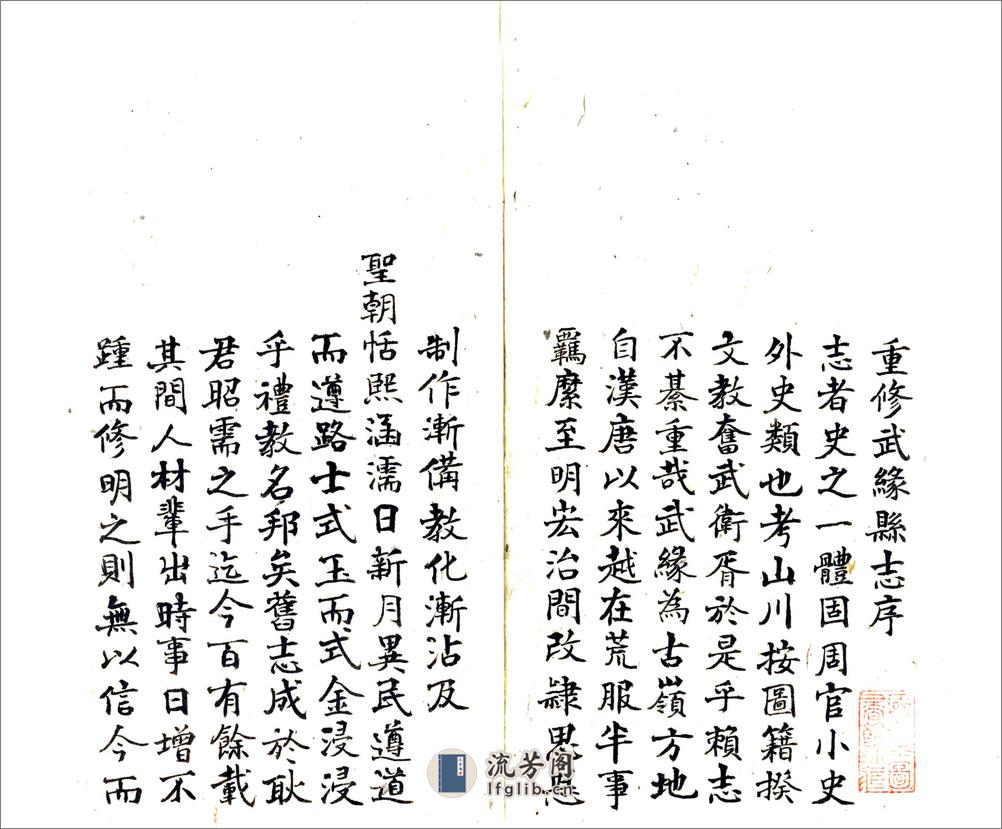 重修武緣縣志序
志者史之一體固周官小史
外史類也考山川按圖籍揆
文教奮武衛胥於是乎賴志
不綦重哉武緣為古嶺方地
自漢唐以來越在荒服半事
羈縻至明宏治間改隸思恩
制作漸備教化漸沾及
聖朝恬熙涵濡日新月異民遵道
而遵路士式玉而式金浸浸
乎禮教名邦矣舊志成於耿
君昭需之手迄今百有餘載
其間人材輩出時事日增不
踵而修明之則無以信今而
流芳阁
lfglib.cn